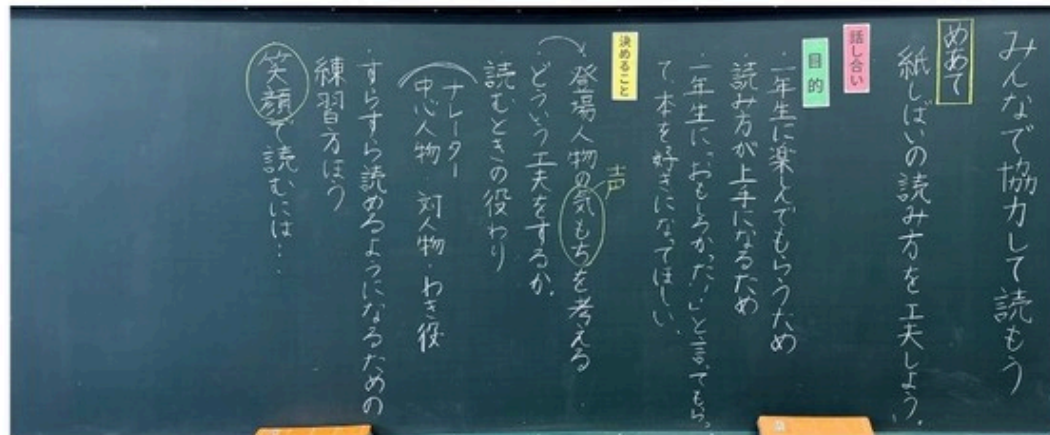 みんなで協力して読もう
めあて
紙しばいの読み方を工夫しよう。
話し合い
目的
・一年生に楽しんでもらうため
読み方が上手になるため
一年生に「おもしろかった!」と言ってもらっ
て、本を好きになってほしい。
決めること
・登場人物の気もちを考える
声
・どういう工夫をするか。
読むときの役わり
ナレーター
中心人物・対人物・わき役
・すらすら読めるようになるための
練習方ほう
・笑顔で読むには…